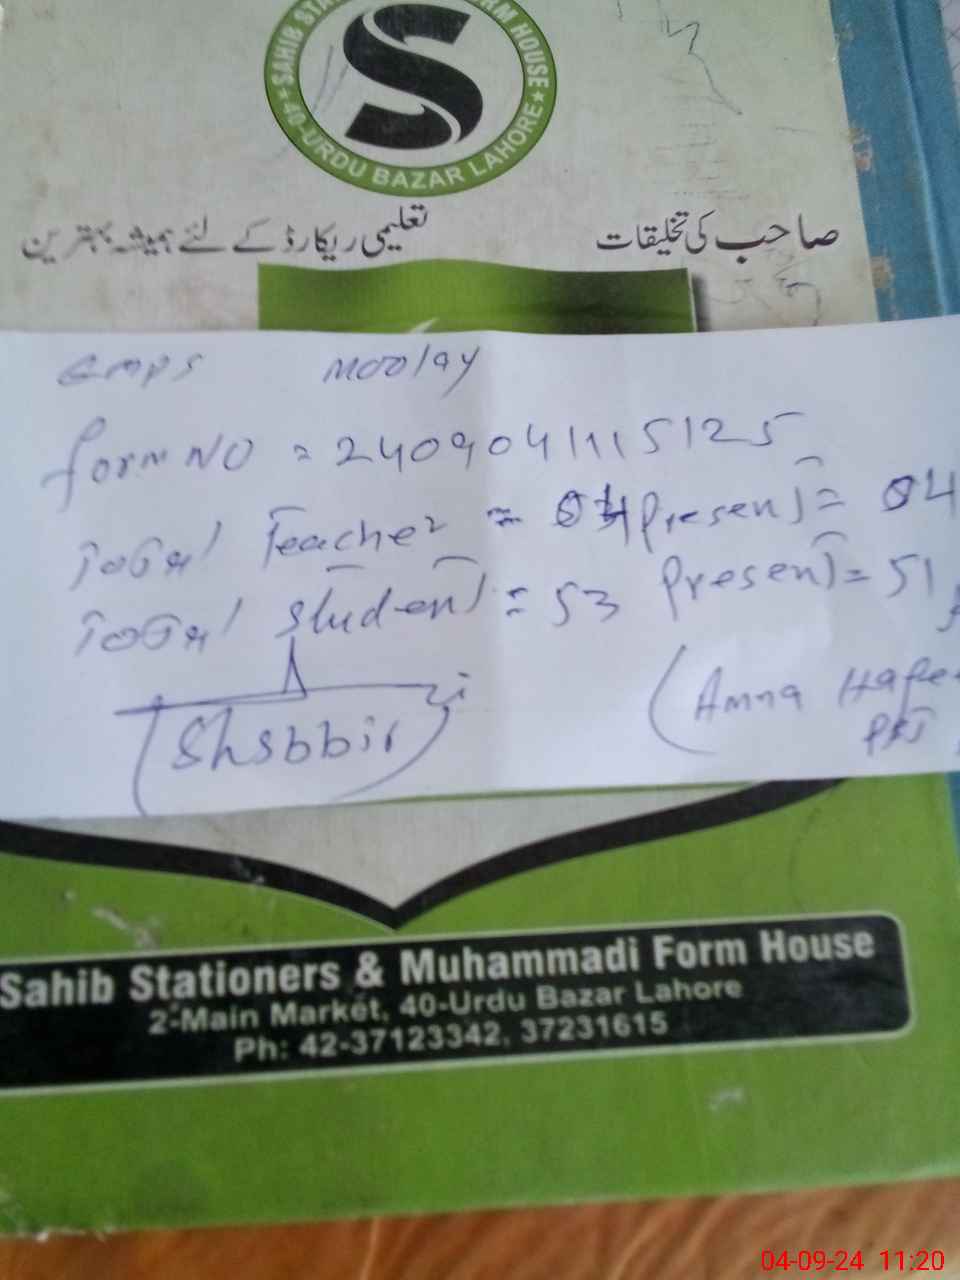 SAHIB STA RM HOUSE
★40-URDU BAZAR LAHORE★
S
صاحب کی تخلیقات
تعلیمی ریکارڈ کے لئے ہمیشہ بہترین
GMPS Moolay
form NO = 2409041115125
Total Teacher = 04 Present = 04
Total Student = 53 Present = 51
(Shsbbir)
(Amna Hafe
PST
Sahib Stationers & Muhammadi Form House
2-Main Market, 40-Urdu Bazar Lahore
Ph: 42-37123342, 37231615
04-09-24 11:20